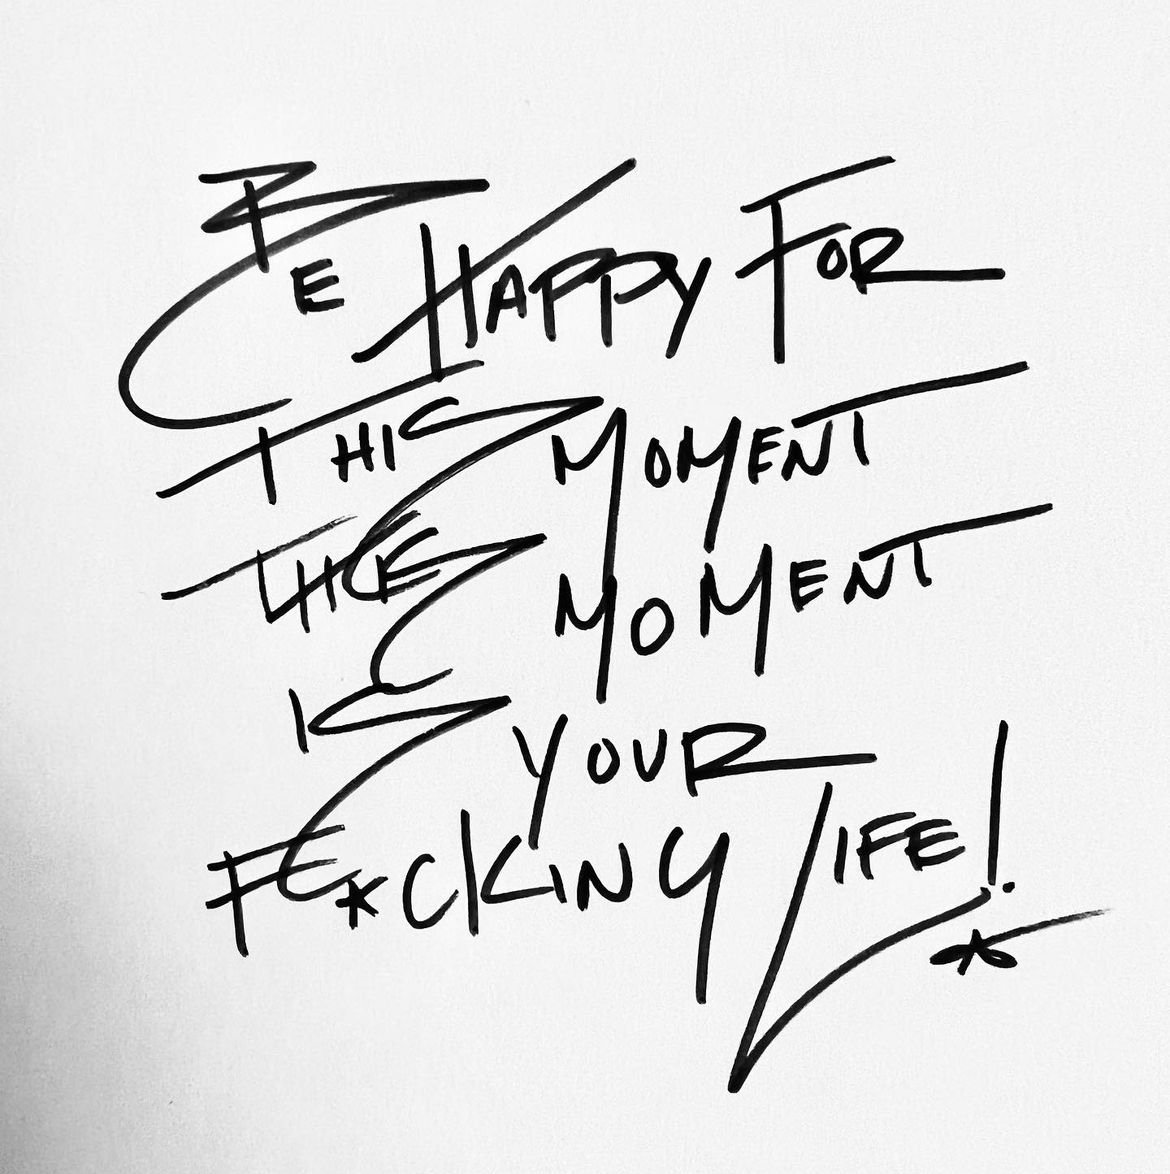 BE HAPPY FOR
THIS MOMENT
THIS MOMENT
IS YOUR
F*CKING LIFE!